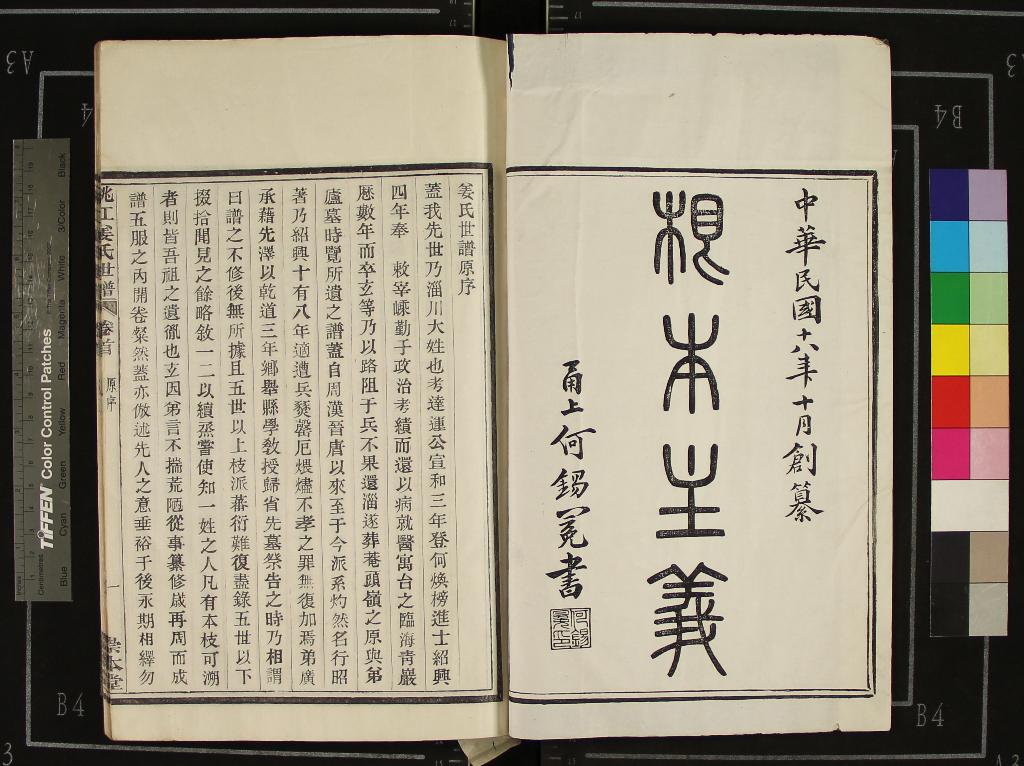 中華民國十八年十月創纂
根本主義
甬上何錫冕書
姜氏世譜原序
蓋我先世乃淄川大姓也考達連公宣和三年登何煥榜進士紹興
四年奉　敕宰嵊勤于政治考績而還以病就醫寓台之臨海青巖
厯數年而卒玄等乃以路阻于兵不果還淄遂葬菴頭嶺之原與弟
廬墓時覽所遺之譜蓋自周漢晉唐以來至于今派系灼然名行昭
著乃紹興十有八年適遭兵燹罄厄煨燼不孝之罪無復加焉弟廣
承藉先澤以乾道三年鄉舉縣學敎授歸省先墓祭告之時乃相謂
曰譜之不修後無所據且五世以上枝派蕃衍難復盡錄五世以下
掇拾聞見之餘略敘一二以續烝嘗使知一姓之人凡有本枝可溯
者則皆吾祖之遺㣲也玄因弟言不揣荒陋從事纂修歲再周而成
譜五服之內開卷粲然蓋亦倣述先人之意垂裕于後永期相繹勿
姚江姜氏世譜
卷首
原序
一
崇本堂
TIFFEN Color Control Patches
Blue
Cyan
Green
Yellow
Red
Magenta
White
3/Color
Black
Inches
Centimetres
A3
B4
B4
B4